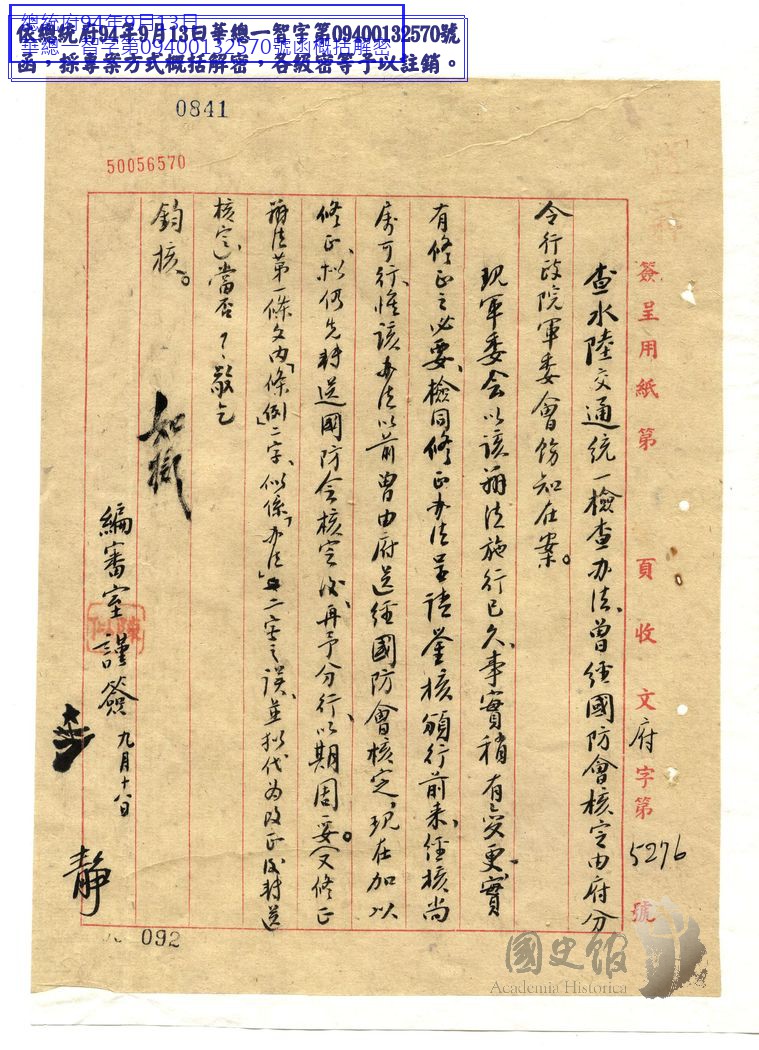 總統府94年9月13日
華總一智字第09400132570號函概括解密
依總統府94年9月13日華總一智字第09400132570號
函，採專案方式概括解密，各級密等予以註銷。
0841
50056570
簽呈用紙第　頁收文府字第5276號
查水陸交通統一檢查办法、曾經國防會核定由府分
令行政院軍委會飭知在案。
現軍委会以該辦法施行已久、事實稍有變更、實
有修正之必要、檢同修正办法呈請鑒核頒行前来、經核尚
屬可行、惟該办法以前曾由府送經國防會核定，現在加以
修正、拟仍先轉送國防会核定後、再予分行、以期周妥。（又修正
辦法第一條文內「條例」二字、似係「办法」二字之誤、並拟代为改正後轉送
核定）當否？敬乞
鈞核。
如擬
編審室謹簽 九月十八日
静
092
國史館
Academia Historica